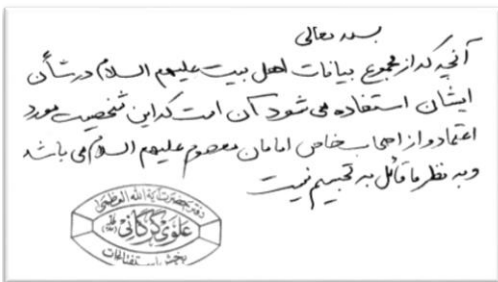 بسمه تعالی
آنچه که از مجموع بیانات اهل بیت علیهم السلام در شأن
ایشان استفاده می شود آن است که این شخصیت مورد
اعتماد و از اصحاب خاص امامان معصوم علیهم السلام می باشد
و به نظر ما قائل به تجسیم نیست
دفتر حضرت آیة الله العظمی
علوی گرگانی
بخش استفتائات